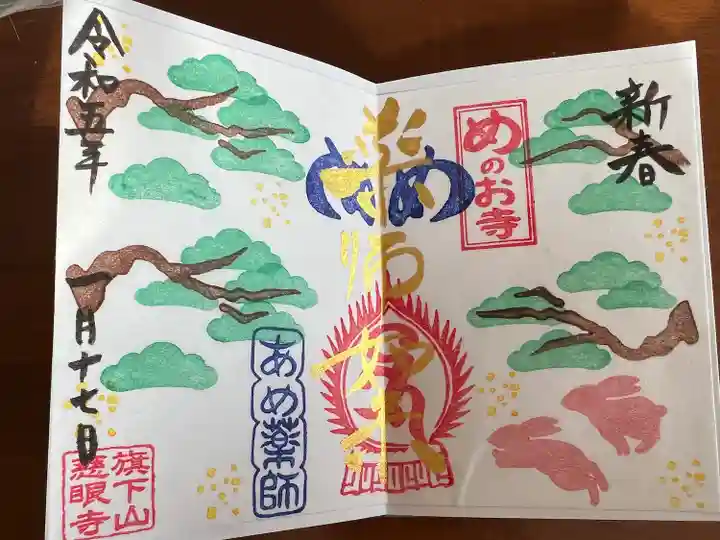 新春
めのお寺
薬師如来
め
あめ薬師
令和五年
一月十七日
旗下山
慈眼寺